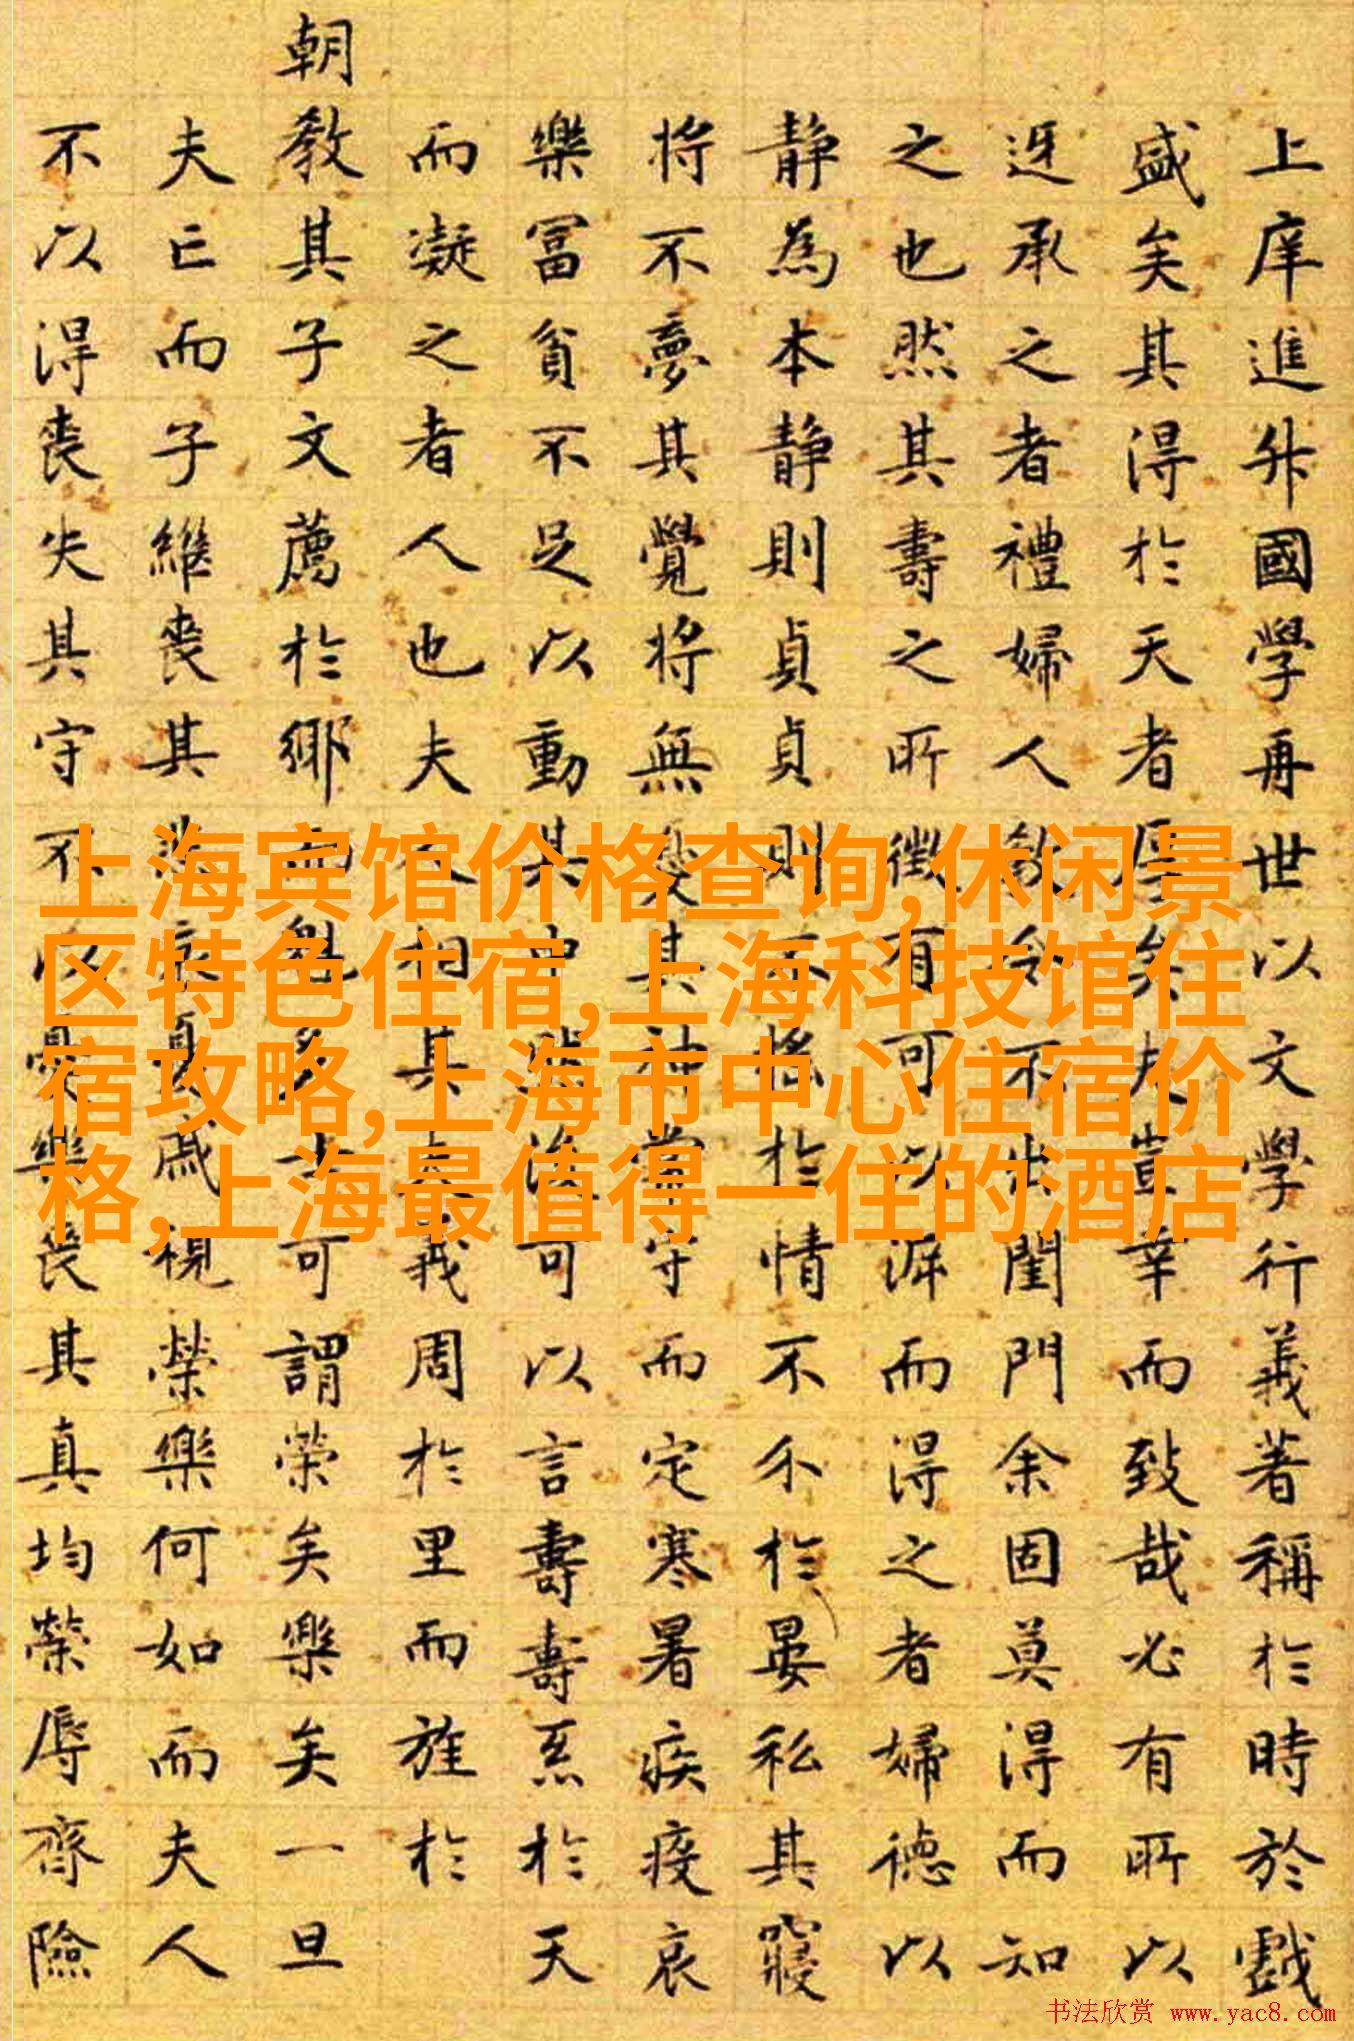 上庠進升國學再世以文學行義著稱於時於戲
盛矣其得於天者厚矣夫豈幸而致哉必有所以
迓承之者禮婦人教令不出閨門余固莫得而知
之也然其壽之所徵有可以泝而得之者婦德以
静為本静則貞貞則不搖於情不介於晏私其寢
將不夢其覺將無憂其神常守而定寒暑疾疫哀
樂冨貧不足以動其中然後可以言壽壽烝於天
而凝之者人也夫人相其夫義周於里而旌於
朝教其子文薦於鄉而魁多士可謂榮矣樂矣一旦
夫亡而子繼喪其悲哀憂戚視榮樂何如而夫人
不以得喪失其守不以憂樂喪其真均榮辱齊險
上海宾馆价格查询,休闲景
区特色住宿,上海科技馆住
宿攻略,上海市中心住宿价
格,上海最值得一住的酒店
书法欣赏 www.yac8.com